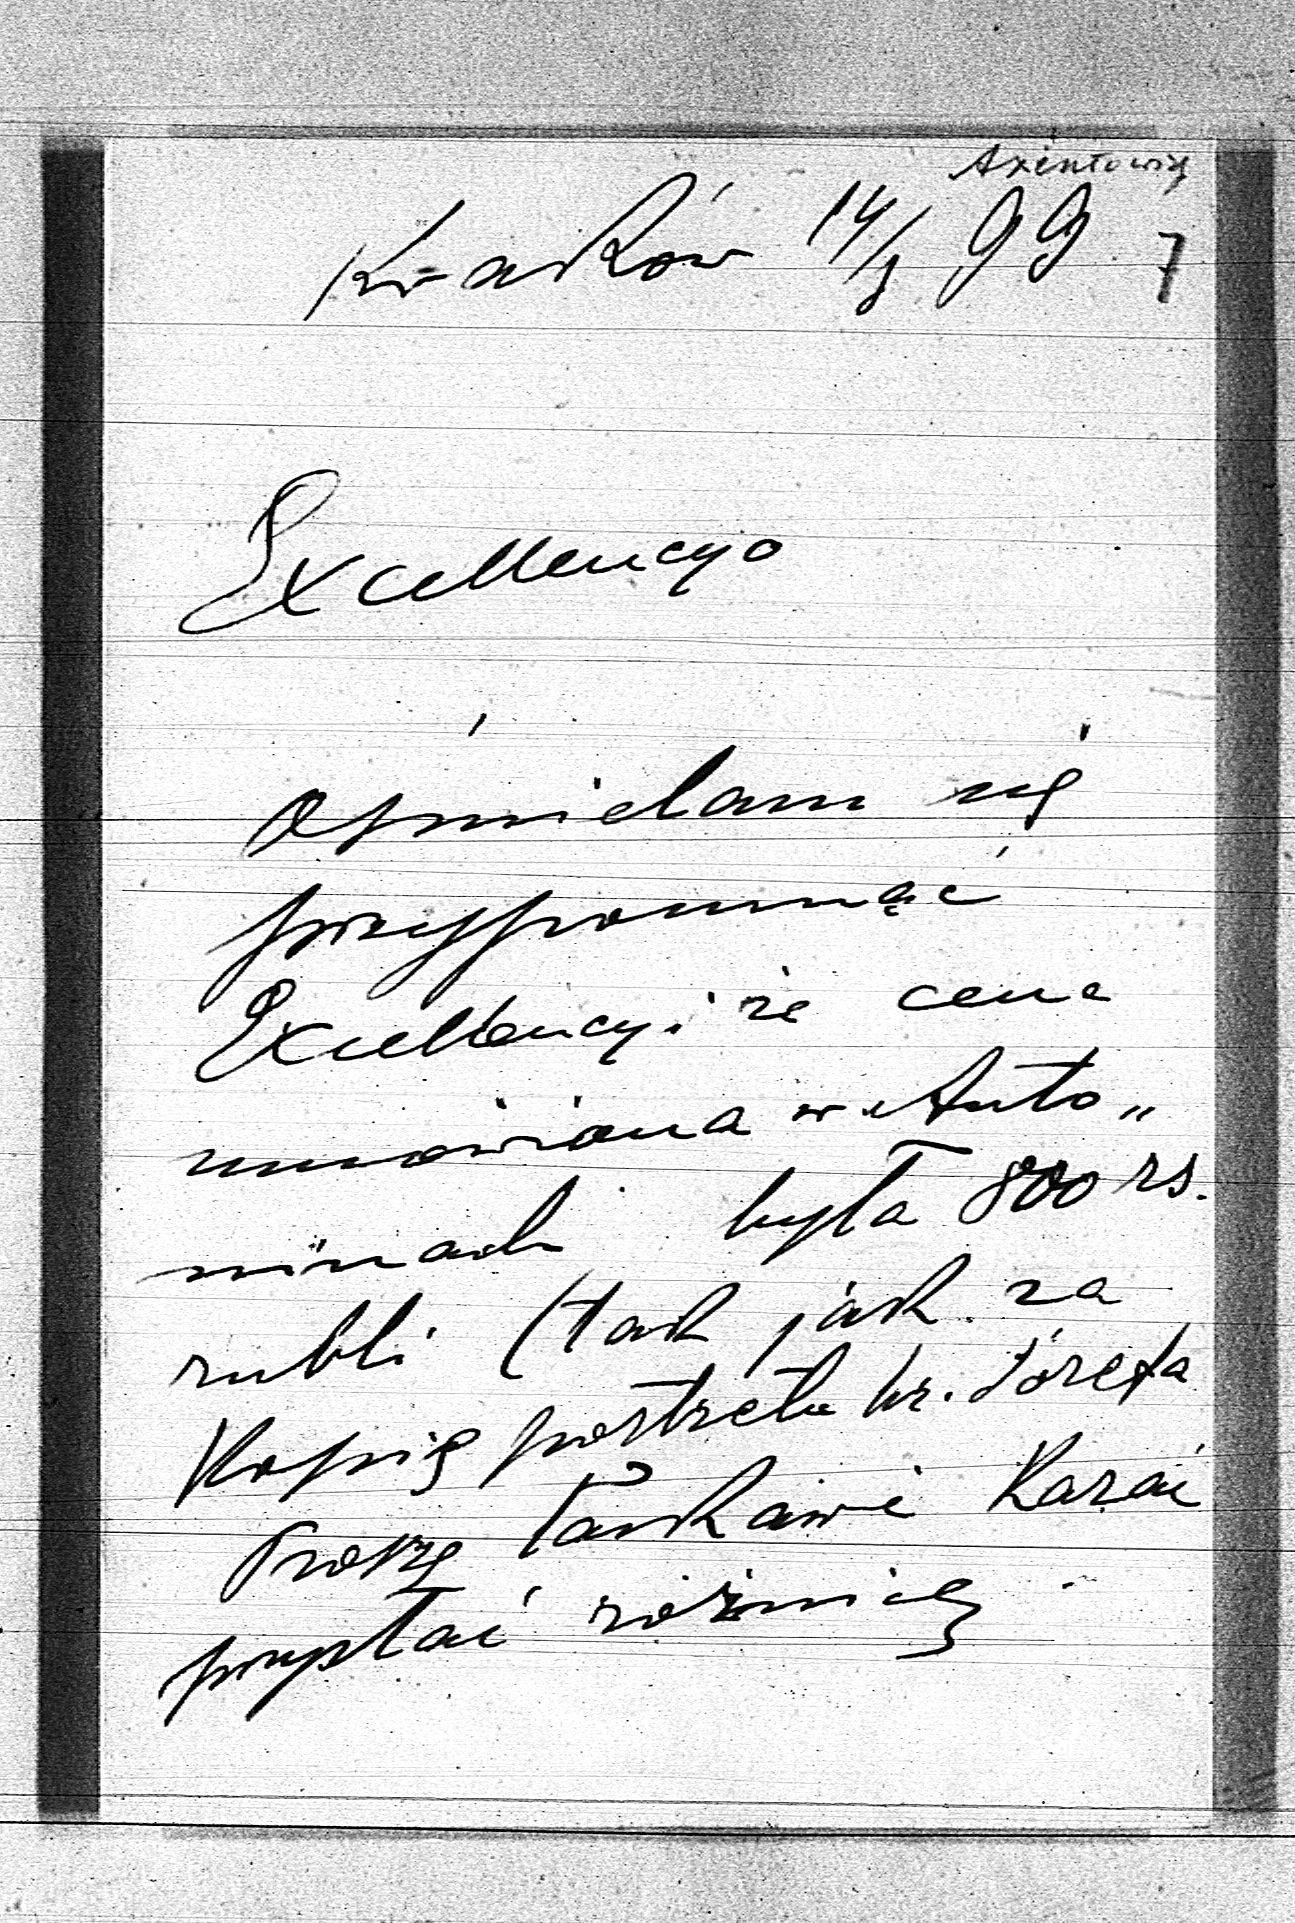 Axentowicz
Kraków 14/3 99 7
Excellencyo
Ośmielam się
przypomnąć
Excellencyi że cena
umówiona w Anto„
ninach była 800 rs.
rubli (tak jak za
Kopię portretu hr. Józefa
Proszę łaskawie Kazać
przysłać różnicę